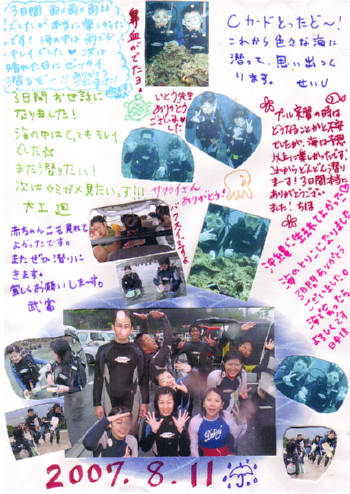 3日間 雨×雨×雨
でしたが本当に楽しかった
です！海の中は雨でも
キレイでした♡次は
晴れた日にゼッタイ
潜るぞ～!!ありがとう
鼻血がでたヨ。
Cカードとったど～！
これから色々な海に
潜って、思い出つく
ります。
せいU
3日間お世話に
なりました！
海の中はとてもキレイ
でした☆
また潜りたい！
次はウミガメ見たいっす!!!
大工 廻
いとう先生
ありがとう
ございました
プール実習の時は
どうなることかと不安
でしたが、海は予想
以上に楽しかったです
これからどんどん潜り
まーす！3日間本当に
ありがとうござい
ました！ちほ
サクライさん
ありがとう！
バクスイですよ
赤ちゃんこを見れて
よかったです。
またぜひ潜りに
きます。
宜しくお願いします。
武富
沖縄に生まれてよかった♡
海のトリコになりました
3日間ありがとう
ございました
2007. 8. 11